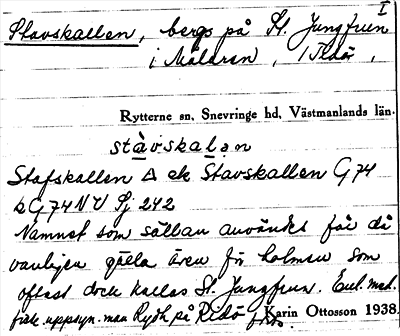 I
Stavskallen, berg på St. Jungfrun
i Mälaren, 1 Ridö,
Rytterne sn, Snevringe hd, Västmanlands län.
stavskalən
Stafskallen Δ ek Stavskallen G 74
LG 74 NV Sj 242
Namnet som sällan användes får då
vanligen gälla även för holmen som
oftast dock kallas St. Jungfrun. Enl. med.
fisk. uppsyn. man Rydh på Ridö
Karin Ottosson 1938